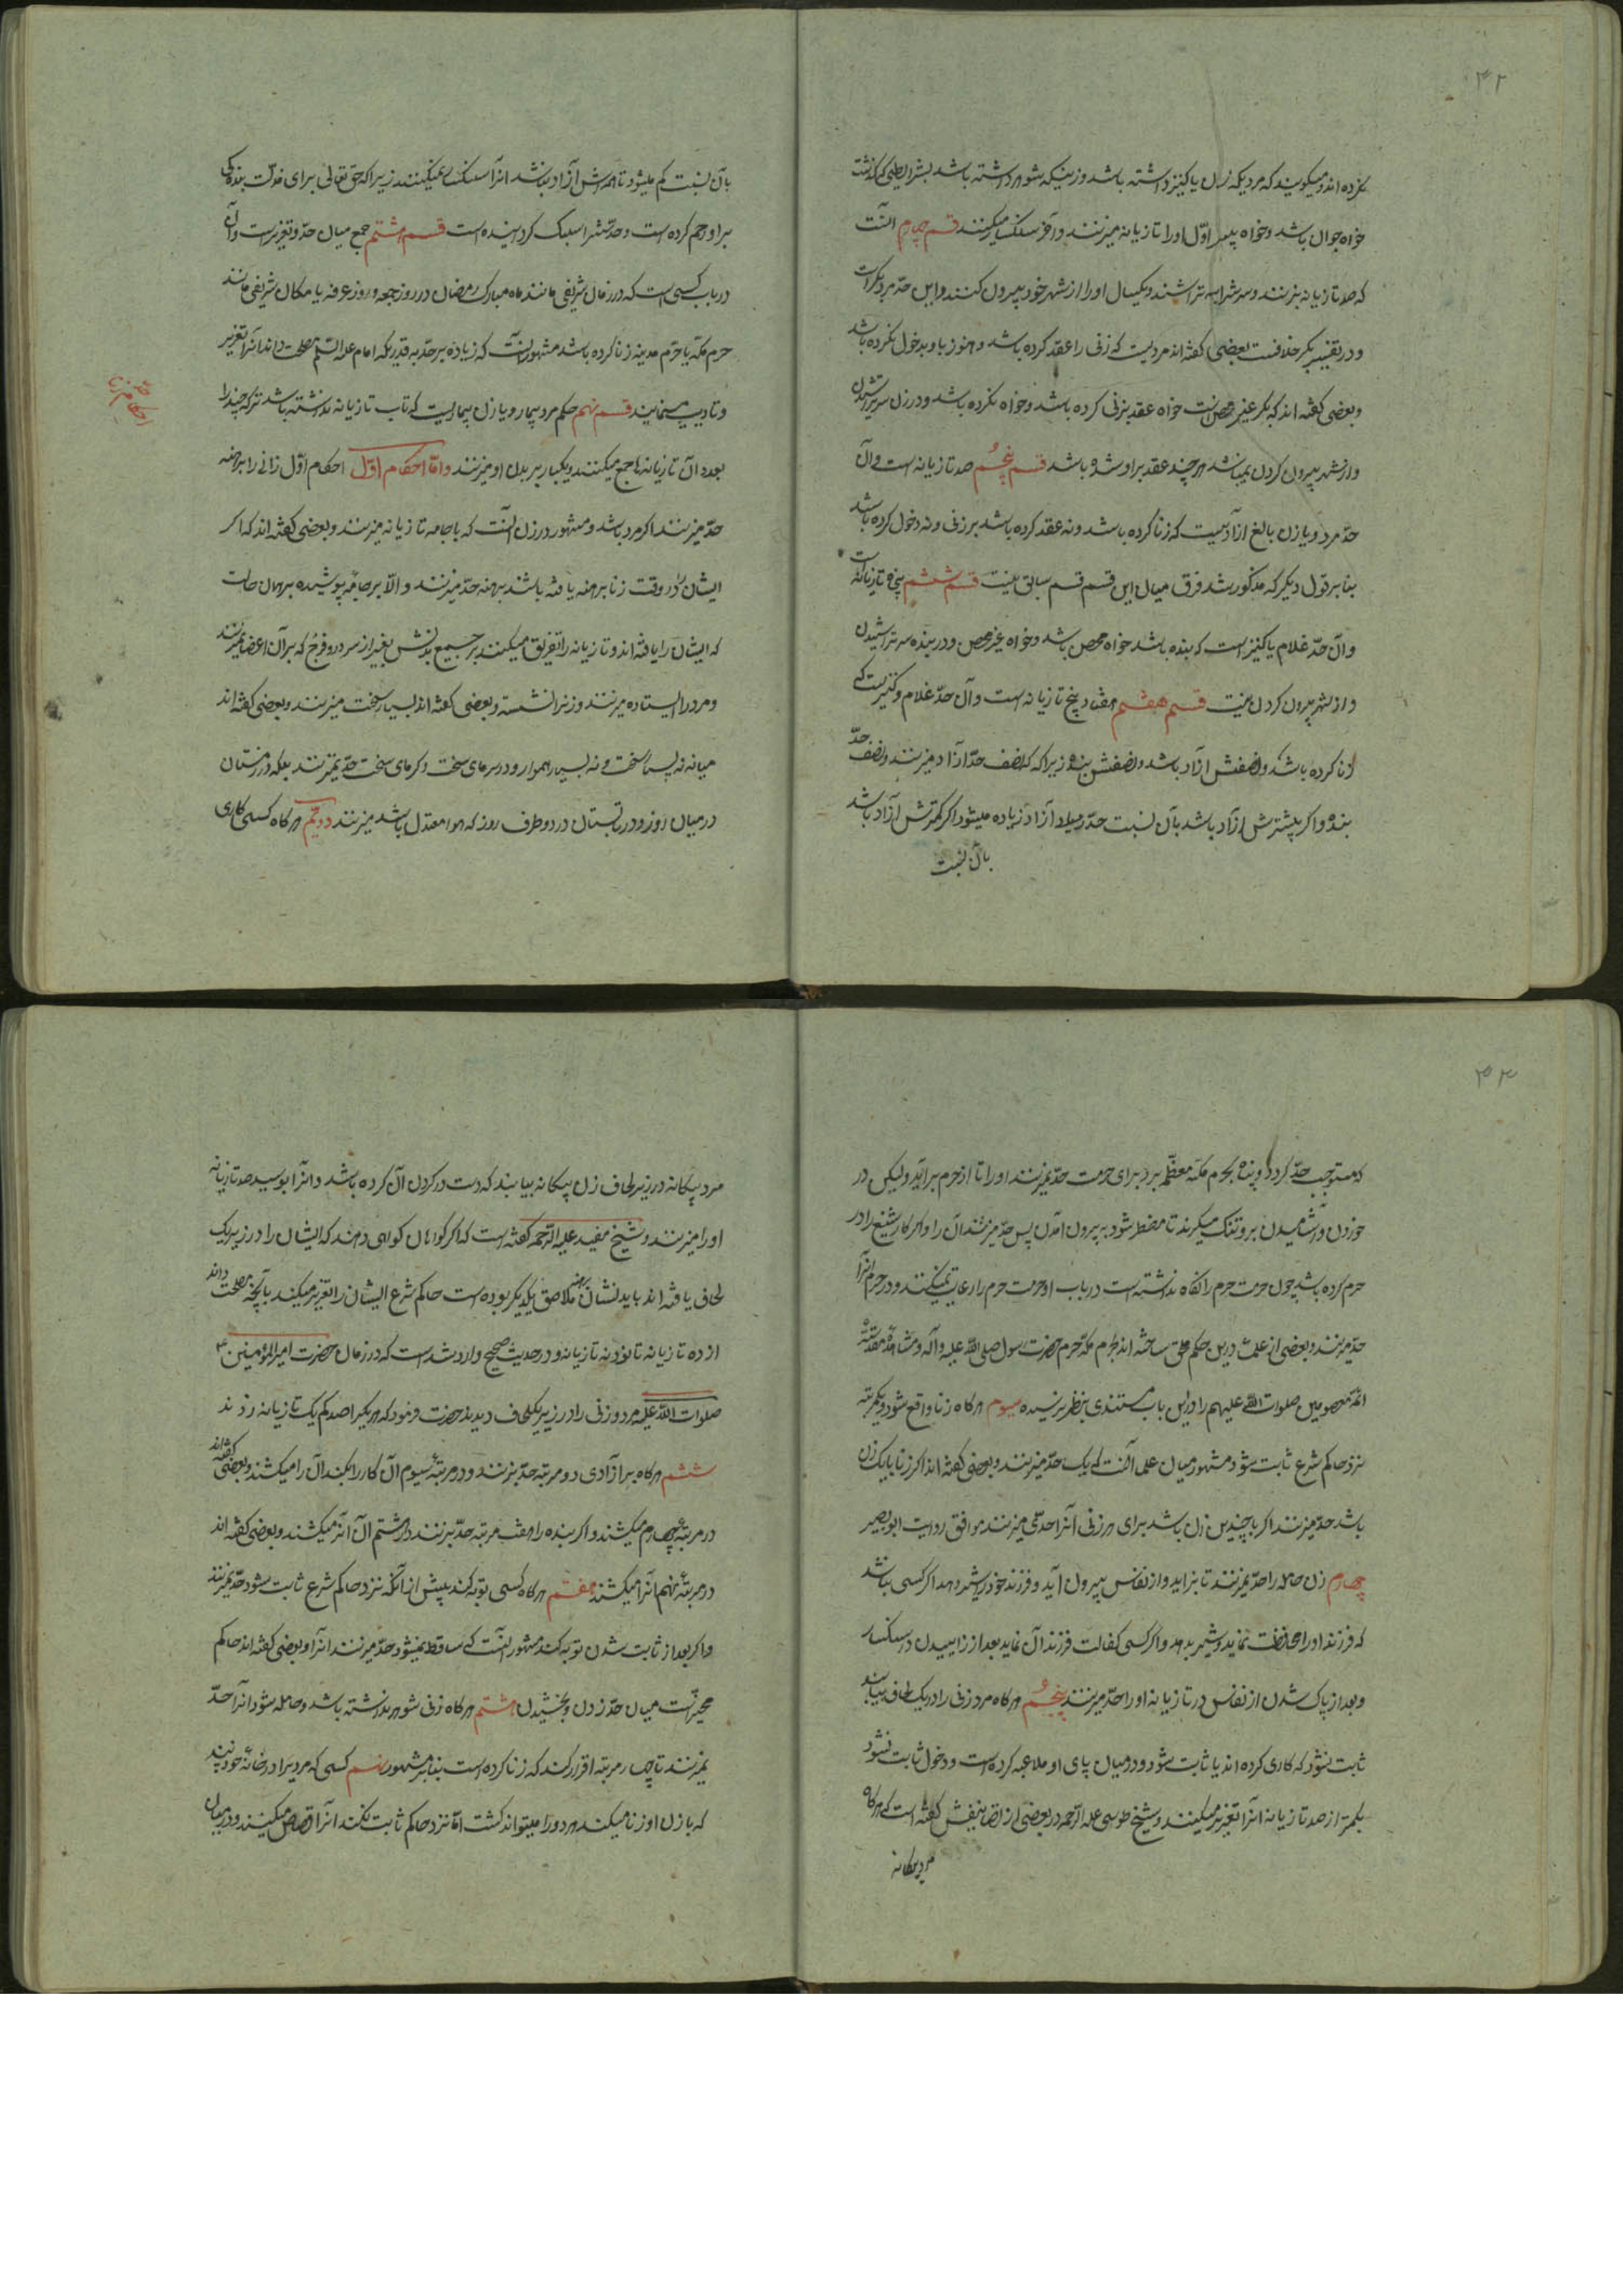 ۴۲
کرده‌اند و میگویند که مردیکه زن یا کنیز داشته باشد و زنیکه شوهر داشته باشد بشرایطی که گذشت
خواه جوان باشد و خواه پیر اول او را تازیانه میزنند و آخر سنکسار میکنند قسم چهارم آنست
که صد تازیانه بزنند و سرش را بتراشند و یکسال او را از شهر خود بیرون کنند و این حد مرد بکر است
و در تفسیر بکر خلافست بعضی گفته‌اند مردیست که زنی را عقد کرده باشد و هنوز باو دخول نکرده باشد
و بعضی گفته‌اند که بکر غیر محصن است خواه عقد بزنی کرده باشد و خواه نکرده باشد و در زن سر تراشیدن
و از شهر بیرون کردن نمیباشد هر چند عقد بر او شده باشد قسم پنجم صد تازیانه است و آن
حد مرد و یا زن بالغ آزادیست که زنا کرده باشند و نه عقد کرده باشد بر زنی و نه دخول کرده باشد
بنا بر قول دیگر که مذکور شد فرق میان این قسم و قسم سابق نیست قسم ششم پنجاه تازیانه است
و آن حد غلام یا کنیز است که بنده باشد خواه محصن باشد و خواه غیر محصن و در بنده سر تراشیدن
و از شهر بیرون کردن نیست قسم هفتم هفتاد پنج تازیانه است و آن حد غلام و کنیزیست که
زنا کرده باشد و نصفش آزاد باشد و نصفش بنده زیرا که نصف حد آزاد میزنند و نصف حد
بنده و اگر بیشترش آزاد باشد بآن نسبت حد آزاد زیاده میشود و اگر کمترش آزاد باشد
بآن نسبت
بآن نسبت کم میشود تا همه‌اش آزاد نباشد آنرا سنکسار نمیکنند زیرا که حق تعالی برای مذلت بندگی
بر او رحم کرده است و حدش را سبک کردانیده است قسم هشتم جمع میان حد و تعزیر است و آن
در باب کسی است که در زمان شریفی مانند ماه مبارک رمضان و روز جمعه و روز عرفه یا مکان شریفی مانند
حرم مکه یا حرم مدینه زنا کرده باشد مشهور آنست که زیاده بر حد بقدریکه امام علیه السلام مصلحت داند آنرا تعزیر
و تادیب مینمایند قسم نهم حکم مرد بیمار و یا زن بیماریست که تاب تازیانه نداشته باشد ترکه چند را
بعدد آن تازیانه‌ها جمع میکنند و یکبار بر بدن او میزنند و اما احکام اول احکام اول زانی را برهنه
حد میزنند اگر مرد باشد و مشهور در زن آنست که با جامه تازیانه میزنند و بعضی گفته‌اند که اگر
ایشان را در وقت زنا برهنه یافته باشند برهنه حد میزنند و الا بر جامه پوشیده بر همان حالت
که ایشان را یافته‌اند و تازیانه را تفریق میکنند بر جمیع بدنش بغیر از سر و رو و فرج که بر آن اعضا نمیزنند
و مرد را ایستاده میزنند و زنرا نشسته و بعضی گفته‌اند بسیار سخت میزنند و بعضی گفته‌اند
میانه نه بسیار سخت و نه بسیار هموار و در سرمای سخت و گرمای سخت حد نمیزنند بلکه در زمستان
در میان روز و در تابستان در دو طرف روز که هوا معتدل باشد میزنند دویم هرگاه کسی کاری
۴۳
که مستوجب حد گردد و پناه بحرم مکه معظمه برد برای حرمت حد نمیزنند او را تا از حرم برآید ولیکن در
خوردن و آشامیدن بر او تنگ میگیرند تا مضطر شود به بیرون آمدن پس حد میزنند آن را و اگر کار شنیع را در
حرم کرده باشد چون حرمت حرم را نگاه نداشته است در باب او حرمت حرم را رعایت نمیکنند و در حرم آنرا
حد میزنند و بعضی از علما درین حکم ملحق ساخته‌اند بحرم مکه حرم حضرت رسول صلی الله علیه و آله و مشاهد مقدسه
ائمه معصومین صلوات الله علیهم را و درین باب مستندی بنظر نرسیده سیوم هرگاه زنا واقع شود و یکمرتبه
نزد حاکم شرع ثابت شود مشهور میان علما آنست که یک حد میزنند و بعضی گفته‌اند اگر زنا با یک زن
باشد حد میزنند اگر با چندین زن باشد برای هر زنی آنرا حدی میزنند موافق روایت ابو بصیر
چهارم زن حامله را حد نمیزنند تا بزاید و از نفاس بیرون آید و فرزند خود را شیر دهد اگر کسی نباشد
که فرزند او را محافظت نماید و شیر بدهد و اگر کسی کفالت فرزند آن نماید بعد از زاییدن در سنکسار
و بعد از پاک شدن از نفاس در تازیانه او را حد میزنند پنجم هرگاه مرد و زنی را در یک لحاف بیابند
ثابت نشود که کاری کرده‌اند یا ثابت شود و در میان پای او ملاعبه کرده است و دخول ثابت نشود
بکمتر از صد تازیانه آنرا تعزیر میکنند و شیخ طوسی علیه الرحمه در بعضی از تصانیفش گفته است که هرگاه
مرد بیکانه
مرد بیکانه در زیر لحاف زن بیکانه بیابند که دست در گردن آن کرده باشد و آنرا بوسید صد تازیانه
او را میزنند و شیخ مفید علیه الرحمه گفته است که اگر گواهان گواهی دهند که ایشان را در زیر یک
لحاف یافته‌اند باید نشان برهنه ملاصق یکدیگر بوده است حاکم شرع ایشان را تعزیر میکند بآنچه مصلحت داند
از ده تازیانه تا نود و نه تازیانه و در حدیث صحیح وارد شده است که در زمان حضرت امیر المؤمنین
صلوات الله علیه مرد و زنی را در زیر یک لحاف دیدند حضرت فرمود که هر یک را صد کم یک تازیانه زدند
ششم هرگاه بر آزادی دو مرتبه حد بزنند و در مرتبه سیوم آن کار را بکند آن را میکشند و بعضی گفته‌اند
در مرتبه چهارم میکشند و اگر بنده را هفت مرتبه حد بزنند در هشتم آنرا میکشند و بعضی گفته‌اند
در مرتبه نهم آنرا میکشند هفتم هرگاه کسی توبه کند پیش از آنکه نزد حاکم شرع ثابت شود حد نمیزنند
و اگر بعد از ثابت شدن توبه کند مشهور آنست که ساقط نمیشود حد میزنند آنرا و بعضی گفته‌اند حاکم
مخیر است میان حد زدن و بخشیدن هشتم هرگاه زنی شوهر نداشته باشد و حامله شود آنرا حد
نمیزنند تا چهار مرتبه اقرار کند که زنا کرده است بنا بر مشهور نهم کسی که مردیرا در خانه خود بیند
که با زن او زنا میکند هر دو را میتواند کشت اما نزد حاکم ثابت نکند آنرا قصاص میکنند و در میان